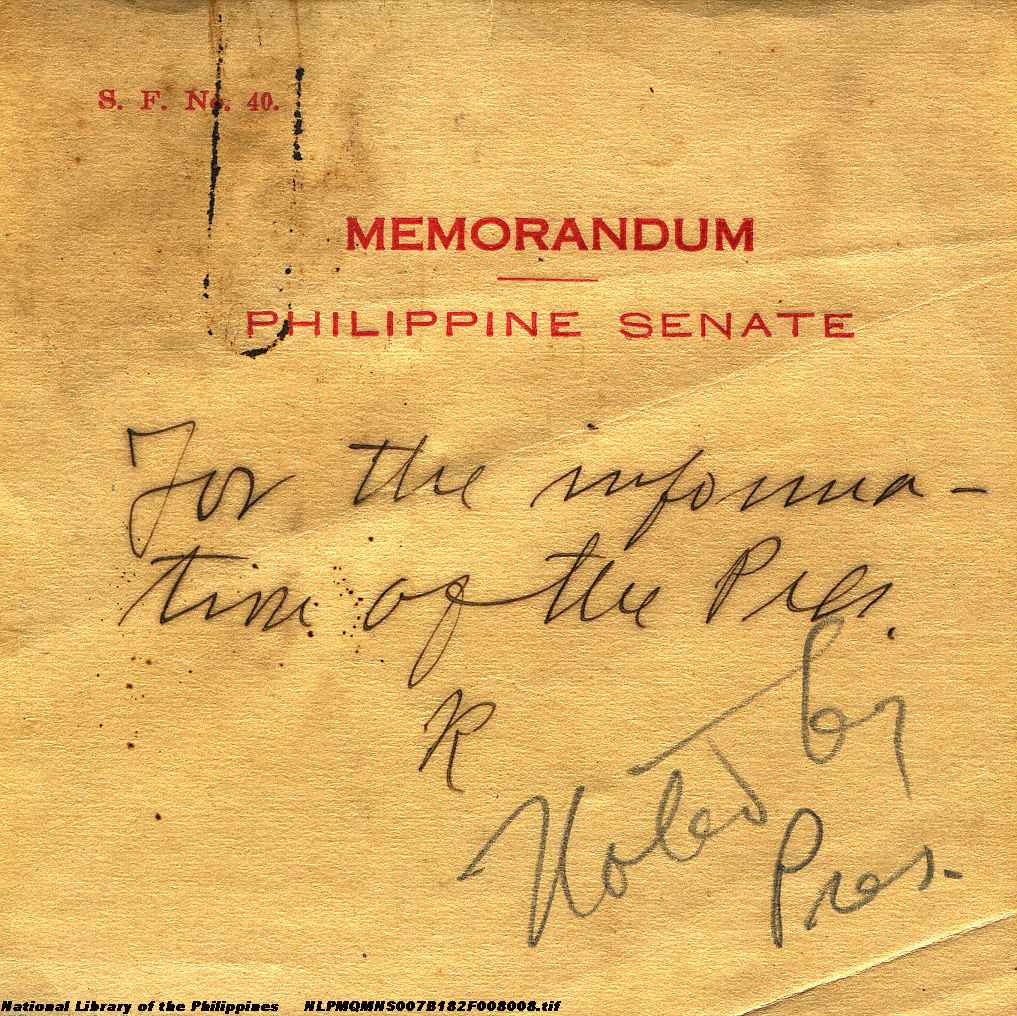 S. F. No. 40.
MEMORANDUM
PHILIPPINE SENATE
For the informa-
tion of the Pres.
R
Noted by
Pres.
National Library of the Philippines NLPMQMNS007B182F008008.tif